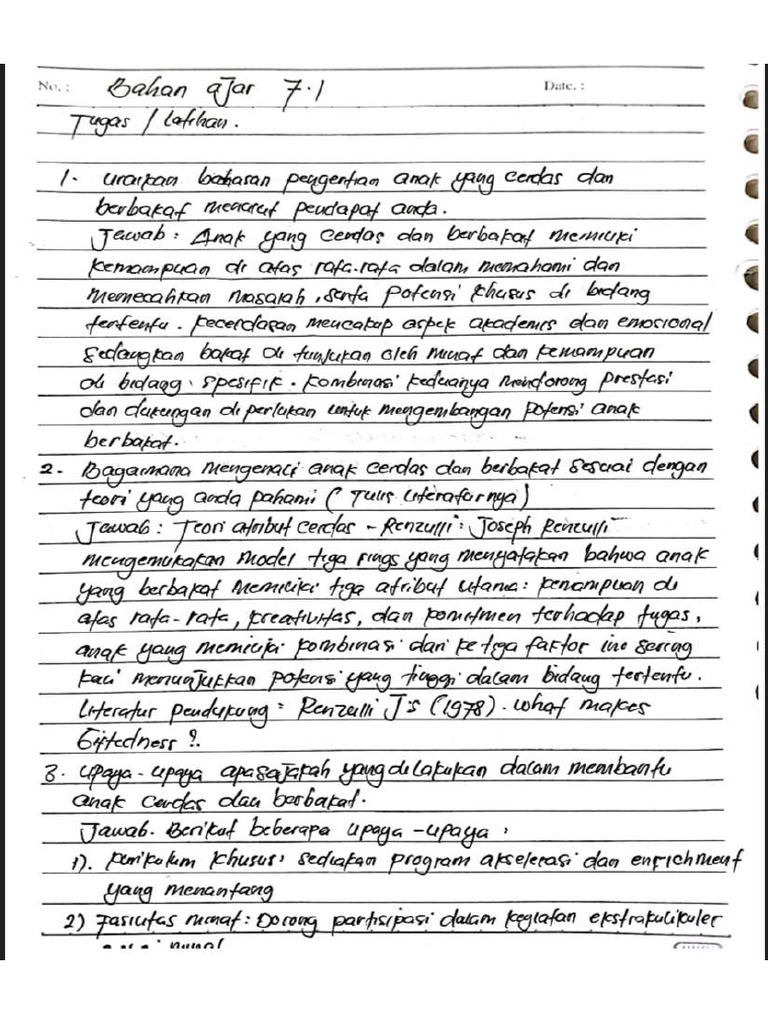 No. : Bahan ajar 7.1 Date. :
Tugas / Latihan.
1. uraikan bahasan pengertian anak yang cerdas dan
berbakat menurut pendapat anda.
Jawab : Anak yang cerdas dan berbakat memiliki
kemampuan di atas rata-rata dalam memahami dan
memecahkan masalah, serta potensi khusus di bidang
tertentu. kecerdasan mencakup aspek akademis dan emosional
sedangkan bakat di tunjukan oleh minat dan kemampuan
di bidang spesifik. kombinasi keduanya mendorong prestasi
dan dukungan di perlukan untuk mengembangan potensi anak
berbakat.
2. Bagaimana mengenali anak cerdas dan berbakat sesuai dengan
teori yang anda pahami (Tulis literaturnya)
Jawab : Teori atribut cerdas - Renzulli : Joseph Renzulli
mengemukakan model tiga rings yang menyatakan bahwa anak
yang berbakat memiliki tiga atribut utama : kemampuan di
atas rata-rata, kreativitas, dan komitmen terhadap tugas,
anak yang memiliki kombinasi dari ketiga faktor ini sering
kali menunjukkan potensi yang tinggi dalam bidang tertentu.
Literatur pendukung = Renzulli J's (1978). what makes
Giftedness ?.
3. upaya-upaya apasajakah yang dilakukan dalam membantu
anak cerdas dan berbakat.
Jawab. Berikut beberapa upaya-upaya :
1). kurikulum khusus : sediakan program akselerasi dan enrichment
yang menantang
2) Fasilitas minat : Dorong partisipasi dalam kegiatan ekstrakulikuler